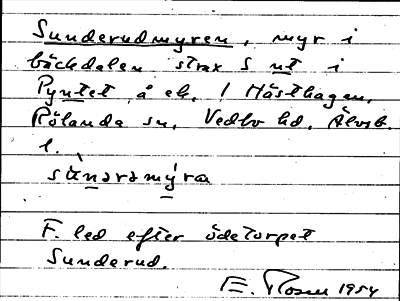 Sunderudmyren, myr i
bäckdalen strax S nt i
Pyntet å ek. 1 Hästhagen,
Rölanda sn, Vedbo hd, Älvsb.
l.
sùnərəmýra
F. led efter ödetorpet
Sunderud.
E. Rosen 1954